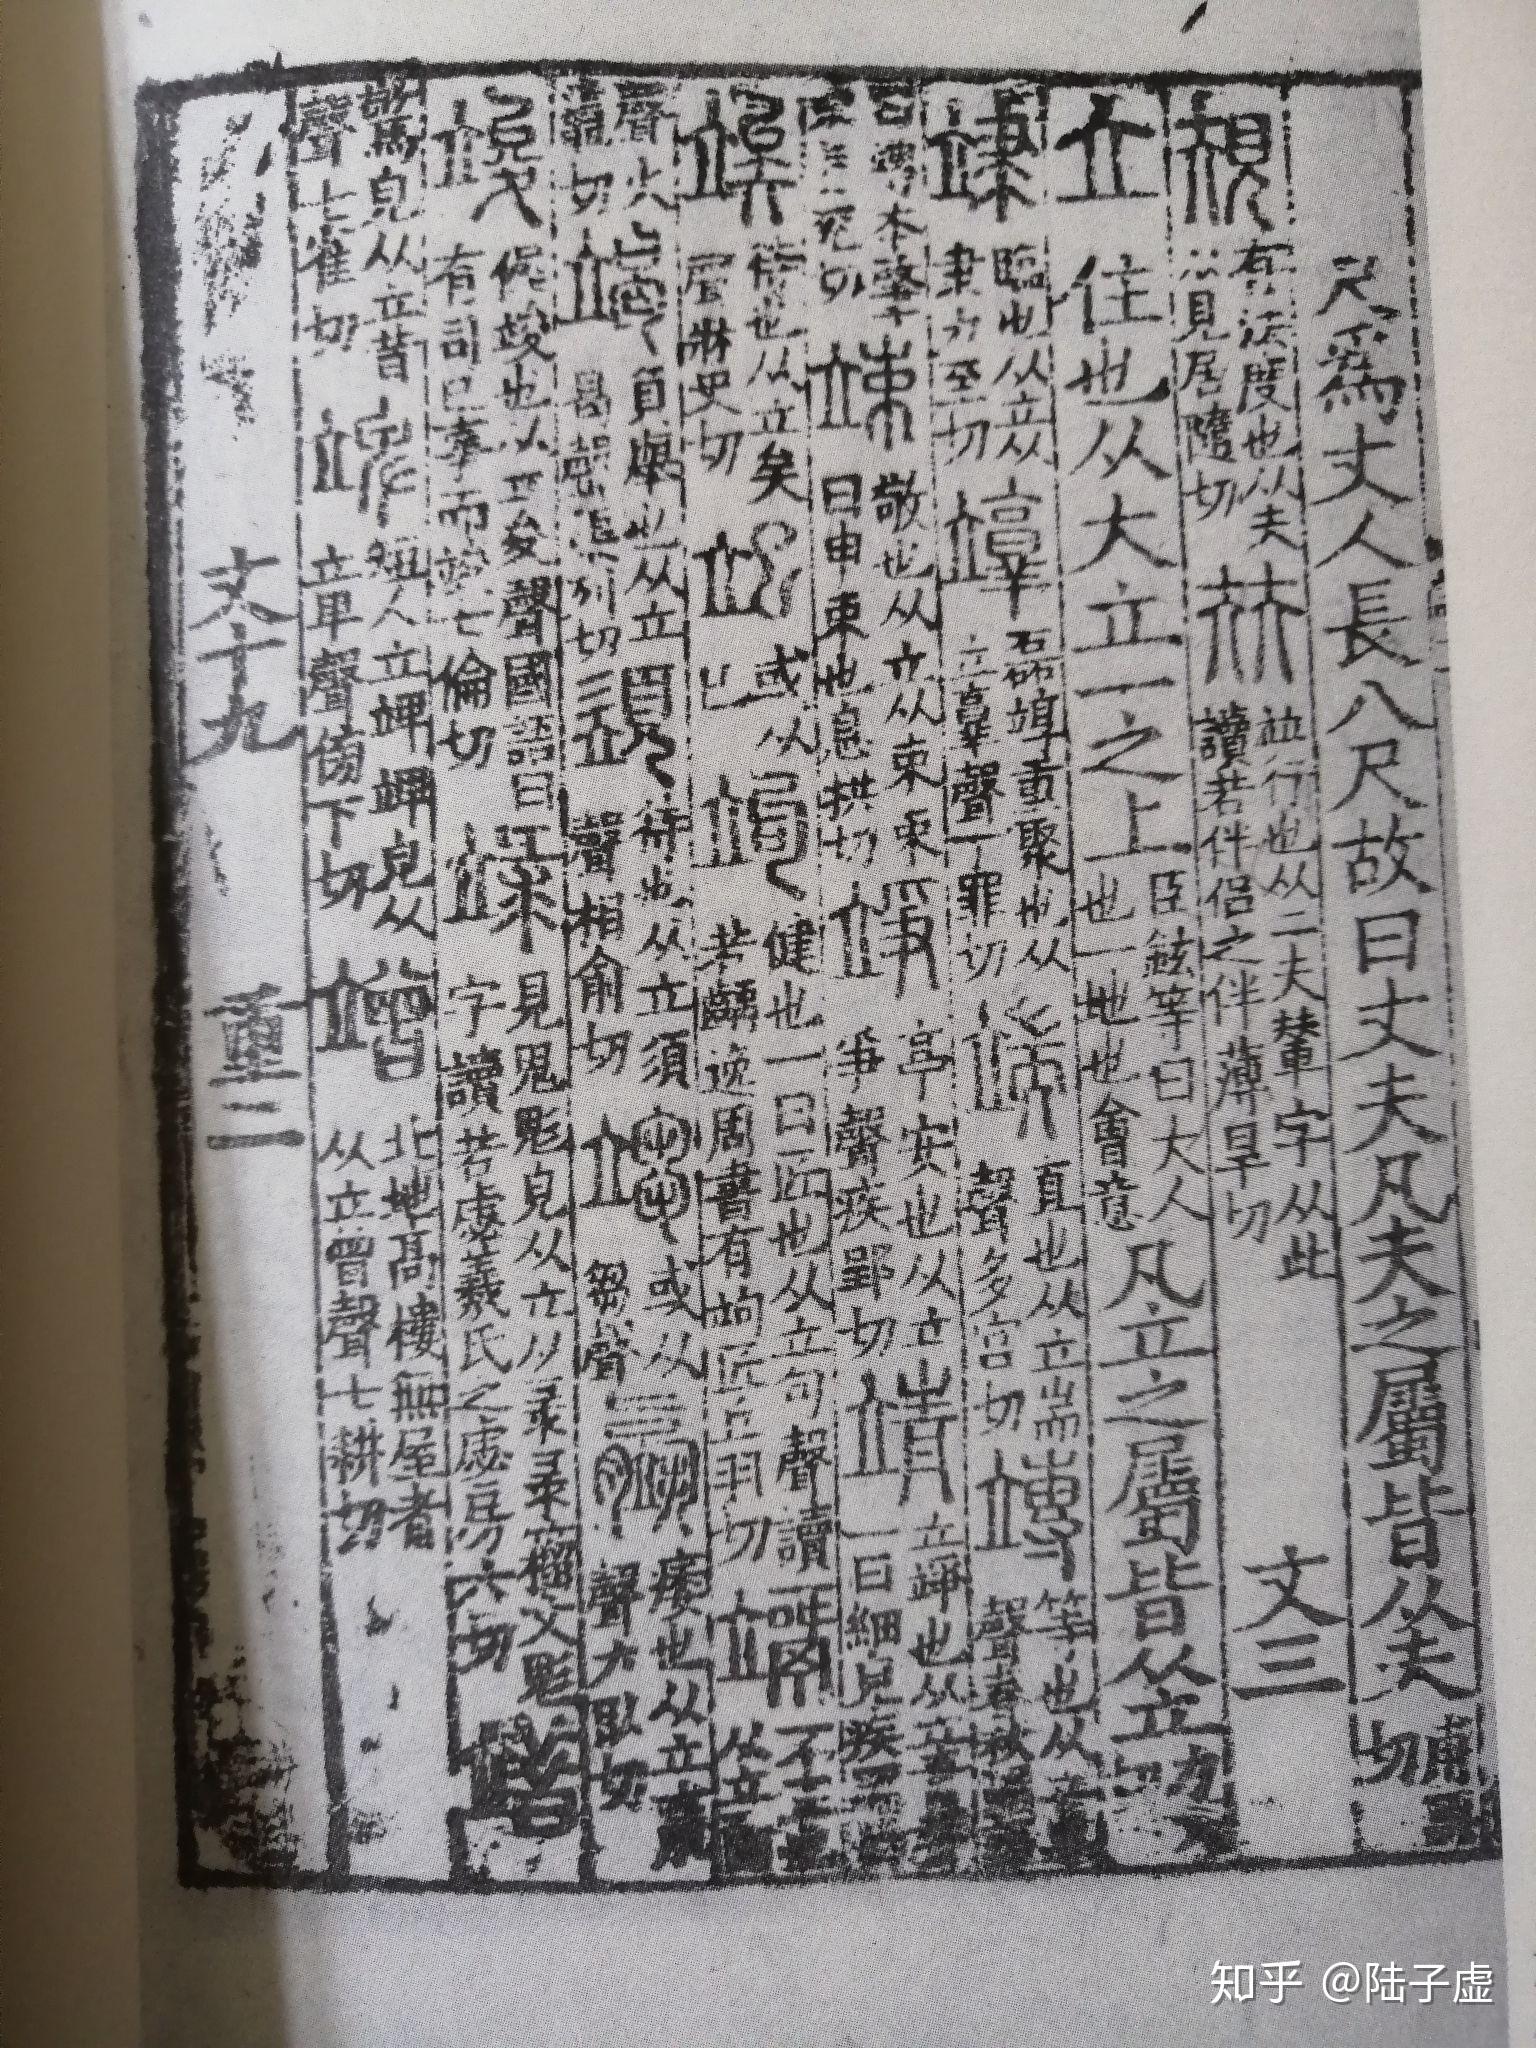 尺爲丈人長八尺故曰丈夫凡夫之屬皆从夫甫切
規有法度也从夫从見居隨切㚘竝行也从二夫輦字从此讀若伴侣之伴薄旱切 文三
立住也从大立一之上臣鉉等曰大人也一地也會意凡立之屬皆从立力切
𥩲臨也从立从隶力至切磊重聚也从立聲丁罪切端直也从立耑聲多官切竱等也从聲春秋
曰竱本肇末旨兖切竦敬也从立从束束自申束也息拱切竫亭安也从立爭聲疾郢切靖立竫也从立一曰細皃疾
竢待也从立矣聲牀史切或从巳竘健也一曰匠也从立句聲讀若齲逸周書有竘匠丘羽切不正从立
聲火鼃切竭負舉也从立曷聲渠列切待也从立須聲相俞切或从芻聲痿也从立聲力卧切
竣偓竣也从立夋聲國語曰有司已事而竣七倫切見鬼鬽皃从立从彔彔籒文鬽字讀若虙羲氏之虙房六切䇎
驚皃从立昔聲七雀切䇑短人立䇑䇑皃从立卑聲傍下切竲北地高樓無屋者从立曾聲七耕切
文十九 重二
知乎 @陆子虚